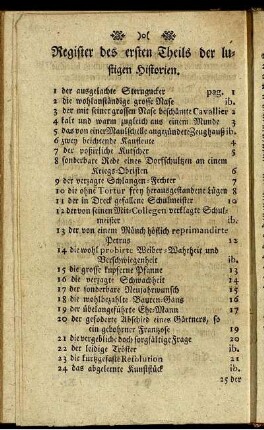 Register des ersten Theils der lu-
stigen Historien.
1 der ausgelachte Sterngucker pag. 1
2 die wohlanständige grosse Nase ib.
3 der mit seiner grossen Nase beschämte Cavallier 2
4 kalt und warm zugleich aus einem Munde 3
5 das von einer Maulschelle angezündete Zeughauß ib.
6 zwey beichtende Kaufleute 4
7 der possirliche Kutscher 5
8 sonderbare Rede eines Dorfschultzen an einem
Kriegs-Obristen 6
9 der verzagte Schlangen-Fechter 7
10 die ohne Tortur frey herausgestandene Lügen 8
11 der in Dreck gefallene Schulmeister 10
12 der von seinen Mit-Collegen verklagte Schul-
meister ib.
13 der von einem Münch höflich reprimandirte
Petrus 12
14 die wohl probirte Weiber-Wahrheit und
Verschwiegenheit ib.
15 die grosse kupferne Pfanne 13
16 die verzagte Schwachheit 14
17 der sonderbare Neujahrwunsch 15
18 die wohlbezahlte Bauren-Gans 16
19 der übelangeführte Ehe-Mann 17
20 der gefoderte Abschied eines Gärtners, so
ein gebohrner Franzose 19
21 die vergebliche doch sorgfältige Frage 20
22 der leidige Tröster ib.
23 die kurtzgefaßte Resolution 21
24 das abgelernte Kunststück ib.
25 der